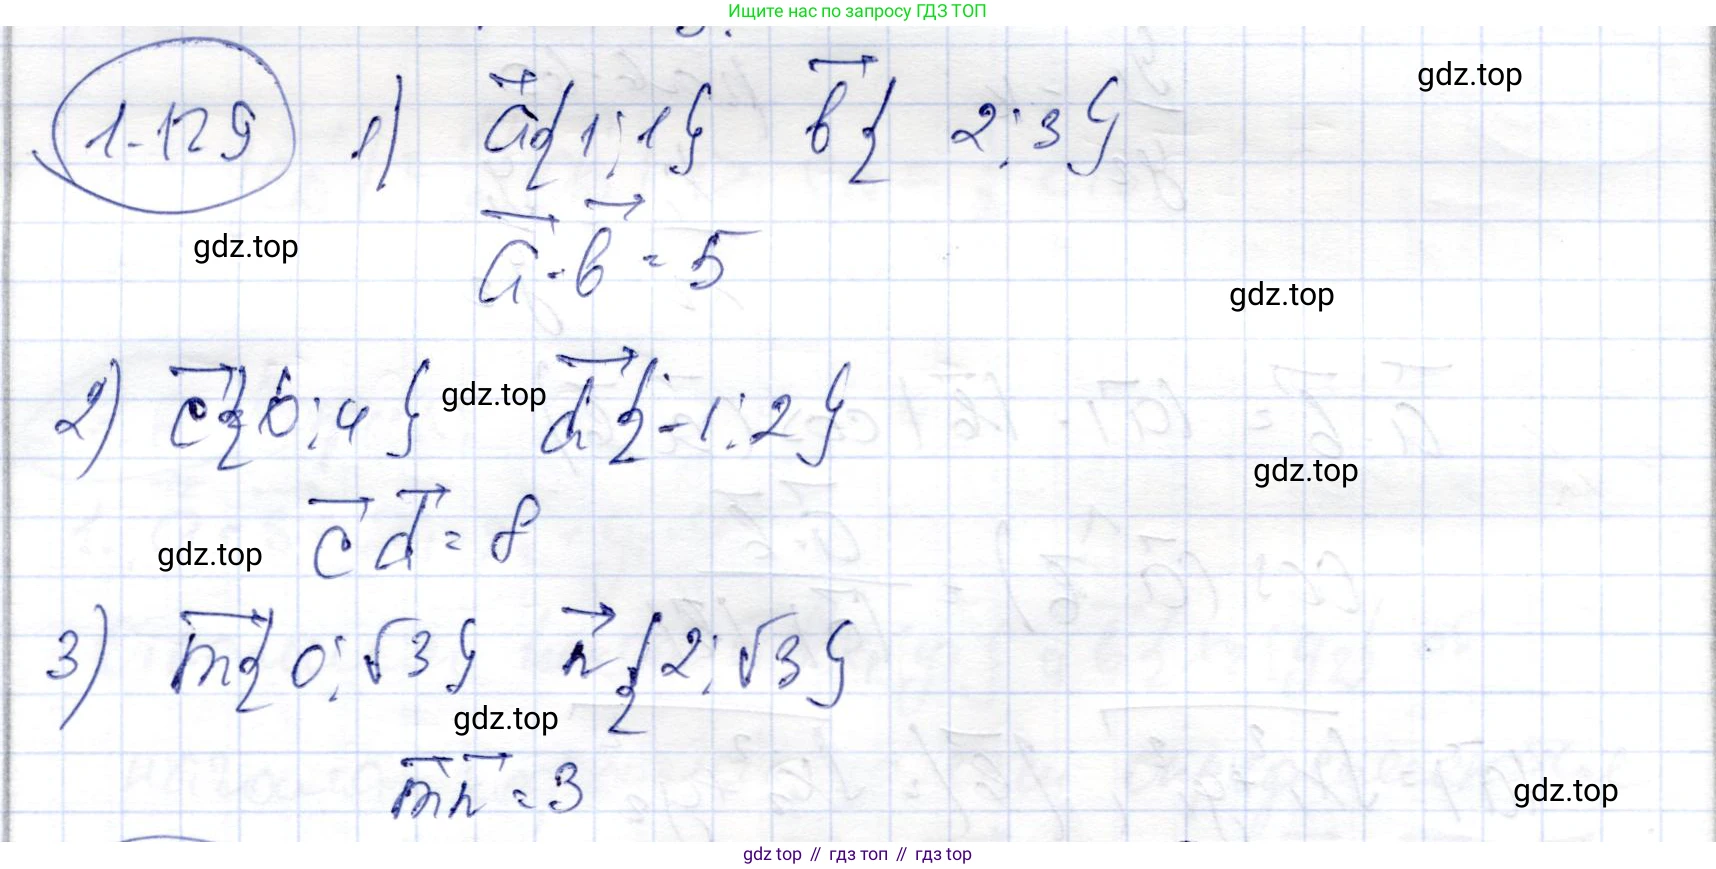 Ищите нас по запросу ГДЗ ТОП
1.129 1) a⃗{1; 1} b⃗{2; 3}
gdz.top
a⃗ · b⃗ = 5
gdz.top
gdz.top
2) c⃗{0; 4} d⃗{-1; 2}
gdz.top
gdz.top
c⃗ d⃗ = 8
gdz.top
3) m⃗{0; √3} n⃗{2; √3}
gdz.top
m⃗ n⃗ = 3
gdz.top
gdz top // гдз топ // gdz top